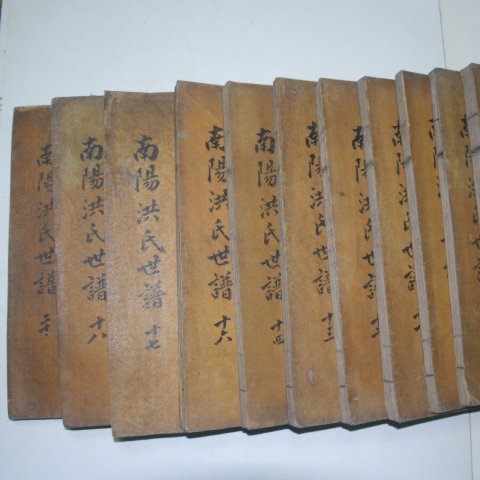 南陽洪氏世譜 二十
南陽洪氏世譜 十八
南陽洪氏世譜 十七
南陽洪氏世譜 十六
南陽洪氏世譜 十四
南陽洪氏世譜 十三
南陽洪氏世譜
南陽洪氏世譜
南
南陽洪氏世